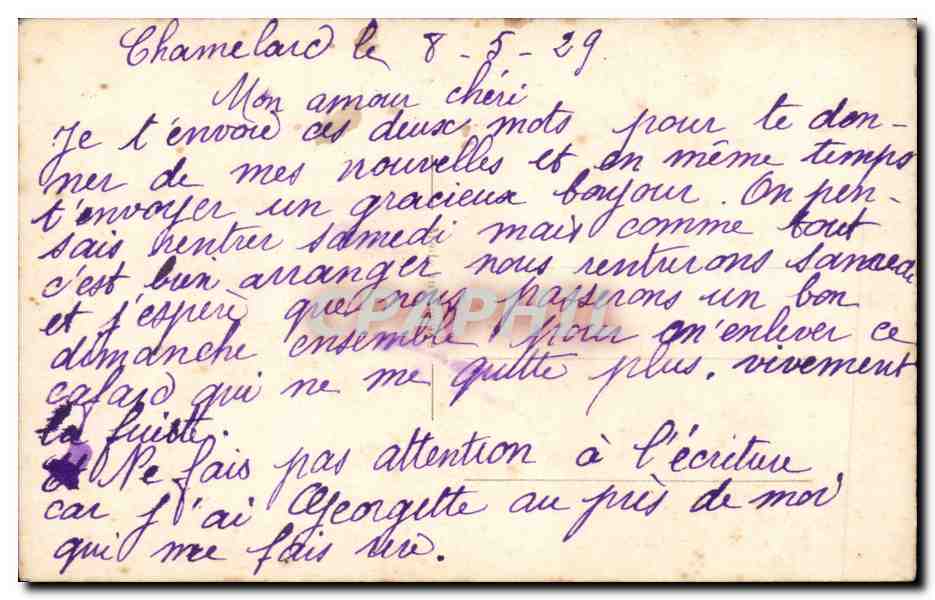 Chamelard le 8-5-29
Mon amour chéri
Je t'envoie ces deux mots pour te don-
ner de mes nouvelles et en même temps
t'envoyer un gracieux bonjour. On pen-
sais rentrer samedi mais comme tout
c'est bien arranger nous renturons samedi
et j'espère que nous passerons un bon
dimanche ensemble pour m'enlever ce
cafard qui ne me quitte plus. vivement
la fuite.
Ne fais pas attention à l'écriture
car j'ai Georgette au près de moi
qui me fais rire.
CPAPHIL